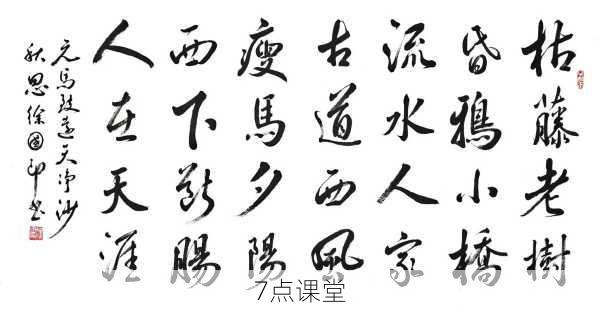 枯藤老樹
昏鴉小橋
流水人家
古道西風
瘦馬夕陽
西下斷腸
人在天涯
元馬致遠天净沙
秋思徐國印書
7点课堂